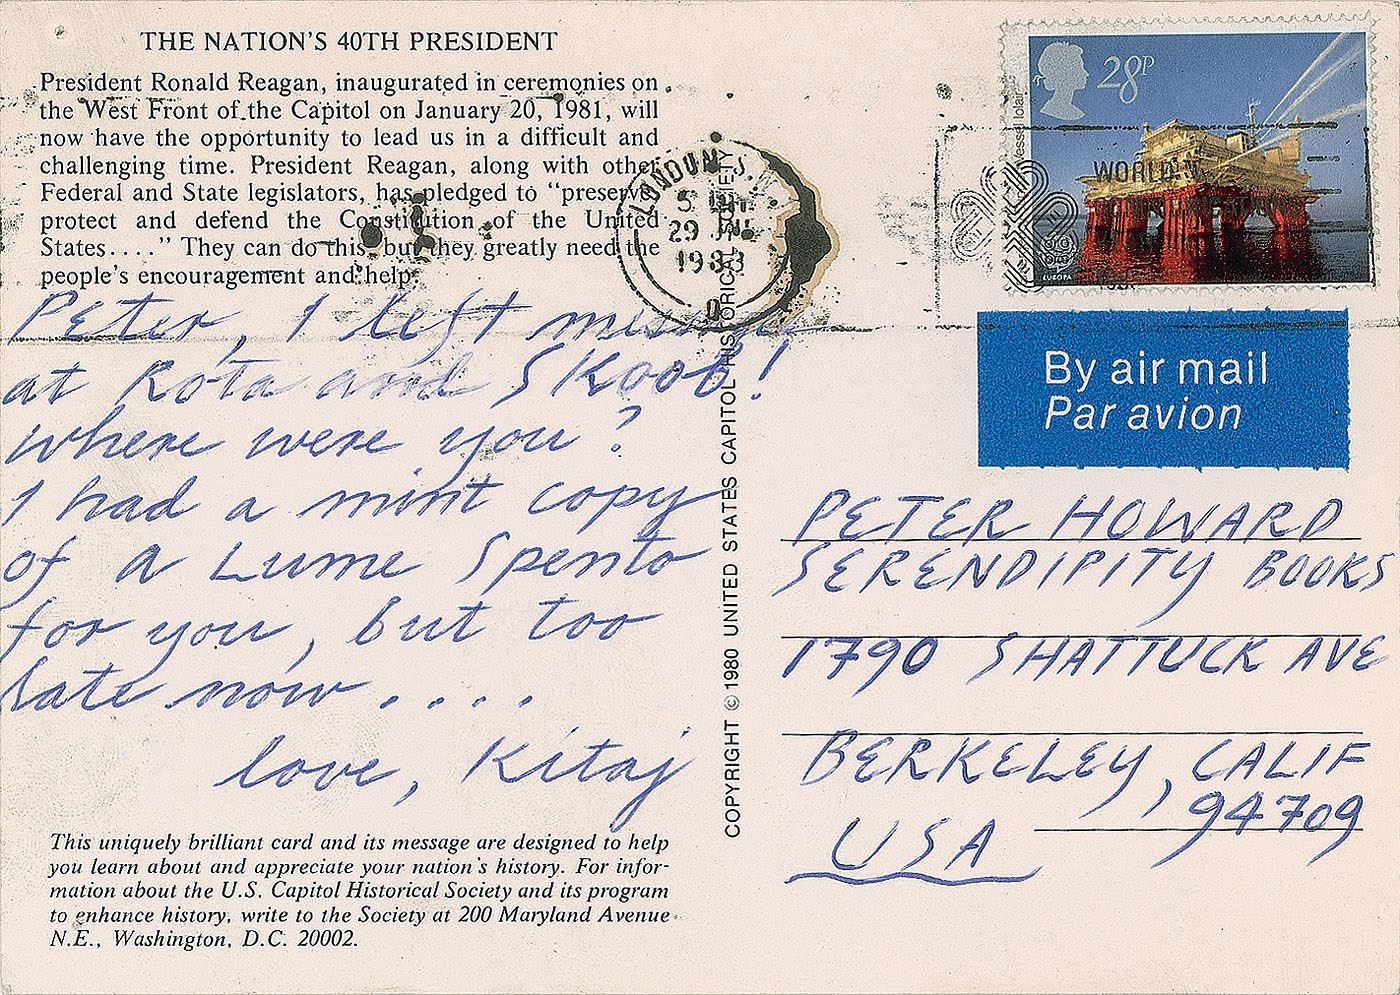 THE NATION'S 40TH PRESIDENT
President Ronald Reagan, inaugurated in ceremonies on
the West Front of the Capitol on January 20, 1981, will
now have the opportunity to lead us in a difficult and
challenging time. President Reagan, along with other
Federal and State legislators, has pledged to "preserve
protect and defend the Constitution of the United
States. . . . " They can do this, but they greatly need the
people's encouragement and help.
Peter, I left messages
at Rota and SKOOB!
where were you?
I had a mint copy
of a Lume Spento
for you, but too
late now . . . .
love, Kitaj
This uniquely brilliant card and its message are designed to help
you learn about and appreciate your nation's history. For infor-
mation about the U.S. Capitol Historical Society and its program
to enhance history, write to the Society at 200 Maryland Avenue
N.E., Washington, D.C. 20002.
COPYRIGHT © 1980 UNITED STATES CAPITOL HISTORICAL SOCIETY
LONDON S.W.
5
29
1983
D
28P
Vessel Iolair
EUROPA
WORLD
By air mail
Par avion
PETER HOWARD
SERENDIPITY BOOKS
1790 SHATTUCK AVE
BERKELEY, CALIF
94709
USA